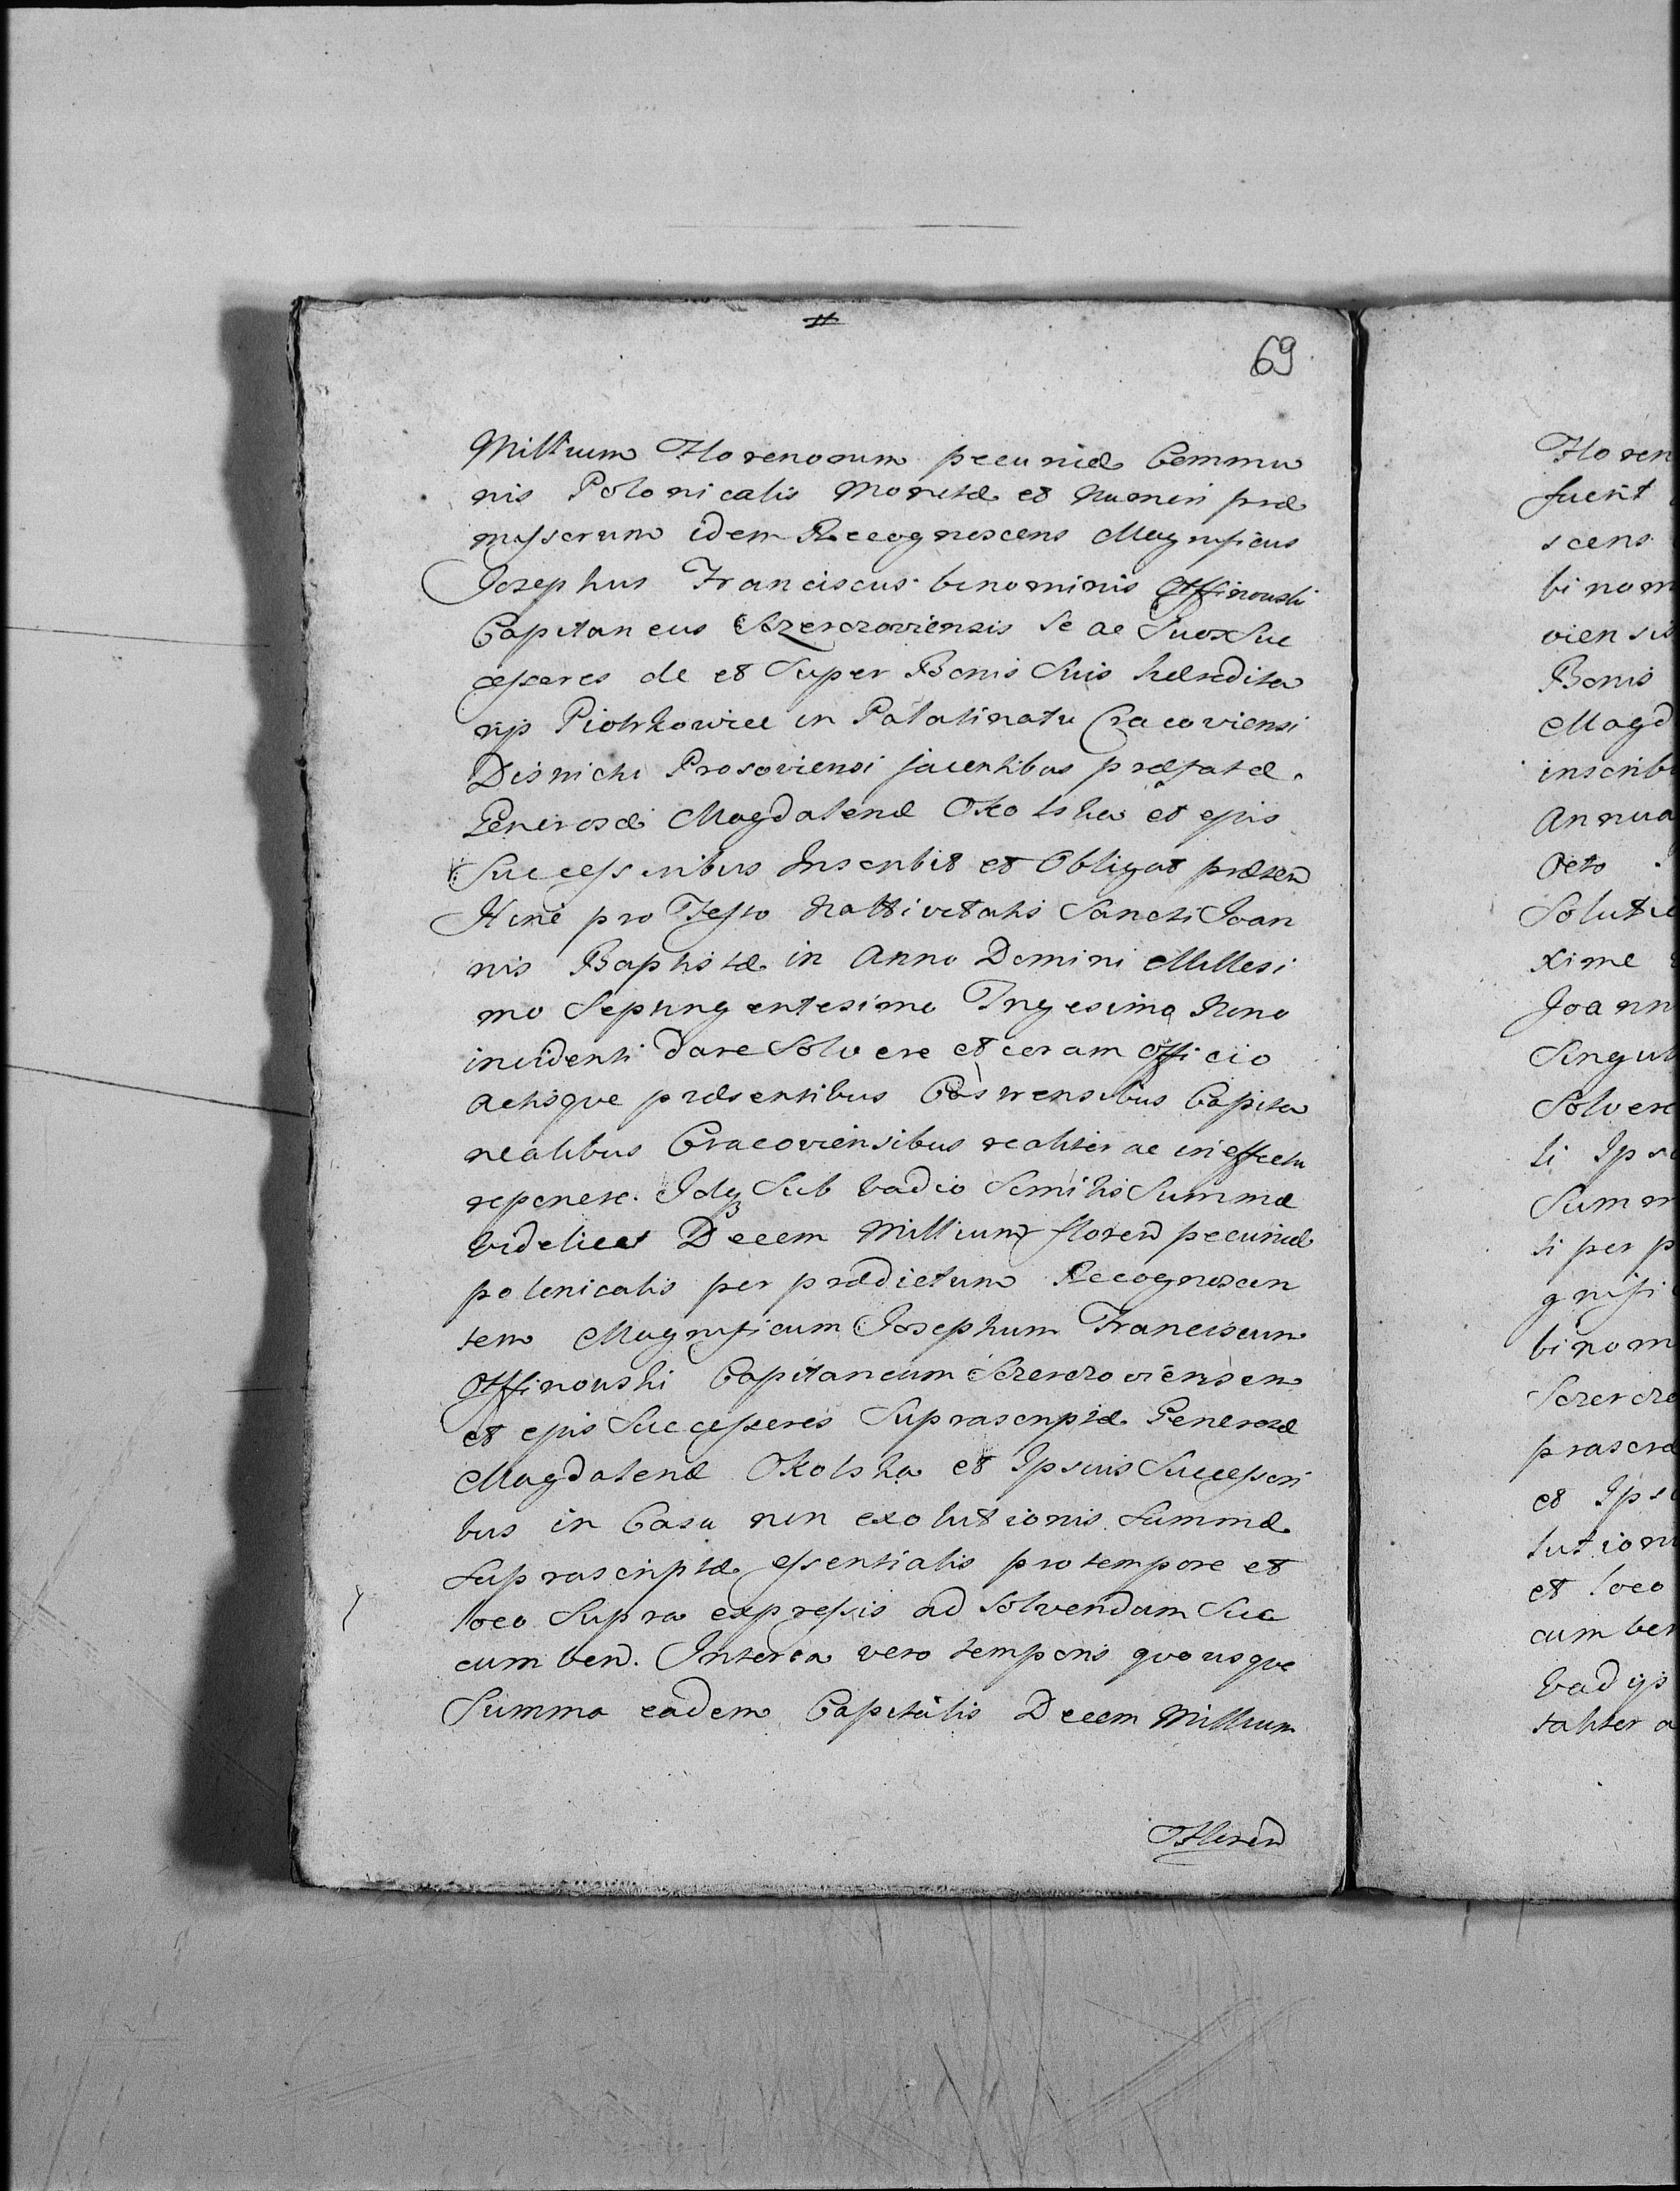 69
Millium Florenorum pecuniæ Commu
nis Polonicalis Monetæ et Numeri præ
missorum idem Recognoscens Magnificus
Josephus Franciscus binominis Ossinowski
Capitaneus Szerczoviensis Se ac Suos Suc
cessores de et Super Bonis Suis hæredita
rijs Piotrkowice in Palatinatu Cracoviensi
Districtu Proszoviensi jacentibus præfatæ
Generosæ Magdalenæ Okolska et ejus
Successoribus Inscribit et Obligat præsen
Hinc pro Festo Nattivitatis Sancti Joan
nis Baptistæ in Anno Domini Millesi
mo Septingentesimo Trigesimo Nono
incidenti dare Solvere et coram Officio
Actisque præsentibus Castrensibus Capita
nealibus Cracoviensibus realiter ac in effectu
reponere. Idq Sub Vadio Similis Summæ
Videlicet Decem Millium floren pecuniæ
polonicalis per prædictum Recognoscen
tem Magnificum Josephum Franciscum
Ossinowski Capitaneum Szerczoviensem
et ejus Successores Suprascriptæ Generosæ
Magdalenæ Okolska et Ipsius Successori
bus in Casu non exolutionis Summæ
Suprascriptæ essentialis pro tempore et
loco Supra expressis ad Solvendum Suc
cumben. Interea vero temporis quousque
Summa eadem Capitalis Decem Millium
Floren
Floren
fuerit
scens
binom
viensis
Bonis
Magd
inscrib
Annua
Octo
Soluti
xime
Joann
Singul
Solvere
li Ips
Summ
ti per p
gnifi
binom
Szercz
prascr
et Ips
lution
et loco
cumben
Vadijs
taliter a